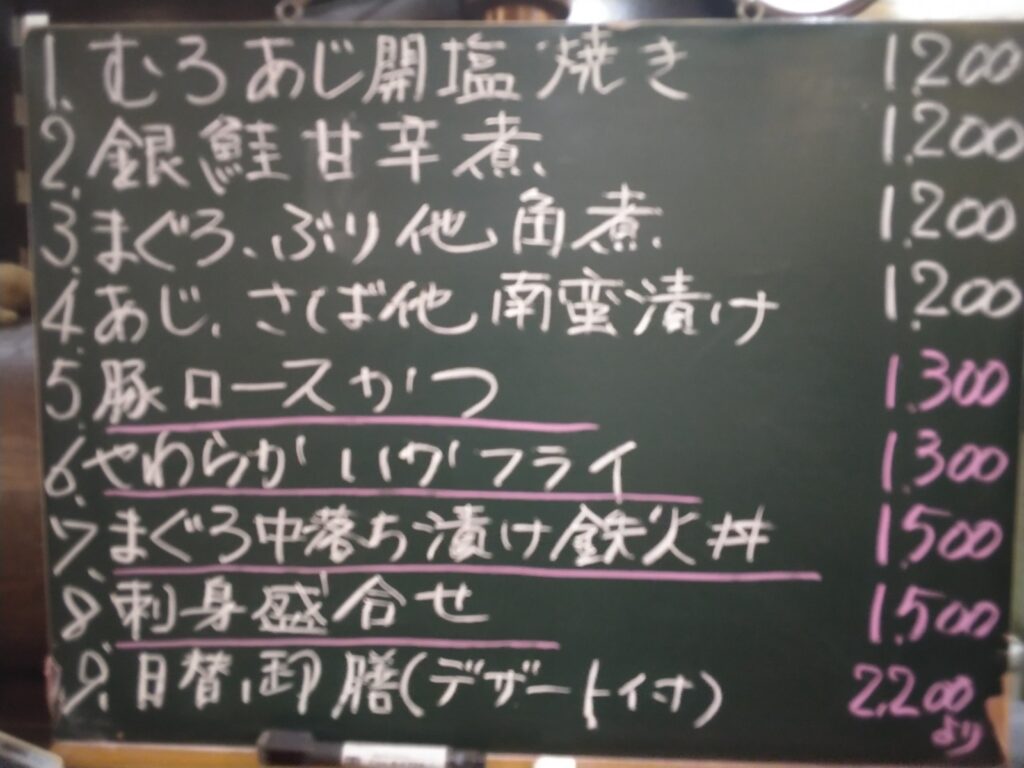 1. むろあじ開塩焼き 1,200
2. 銀鮭甘辛煮 1,200
3. まぐろ、ぶり他角煮 1,200
4. あじ、さば他南蛮漬け 1,200
5. 豚ロースかつ 1,300
6. やわらかいかフライ 1,300
7. まぐろ中落ち漬け鉄火丼 1,500
8. 刺身盛合せ 1,500
9. 日替り御膳(デザート付) 2,200
より